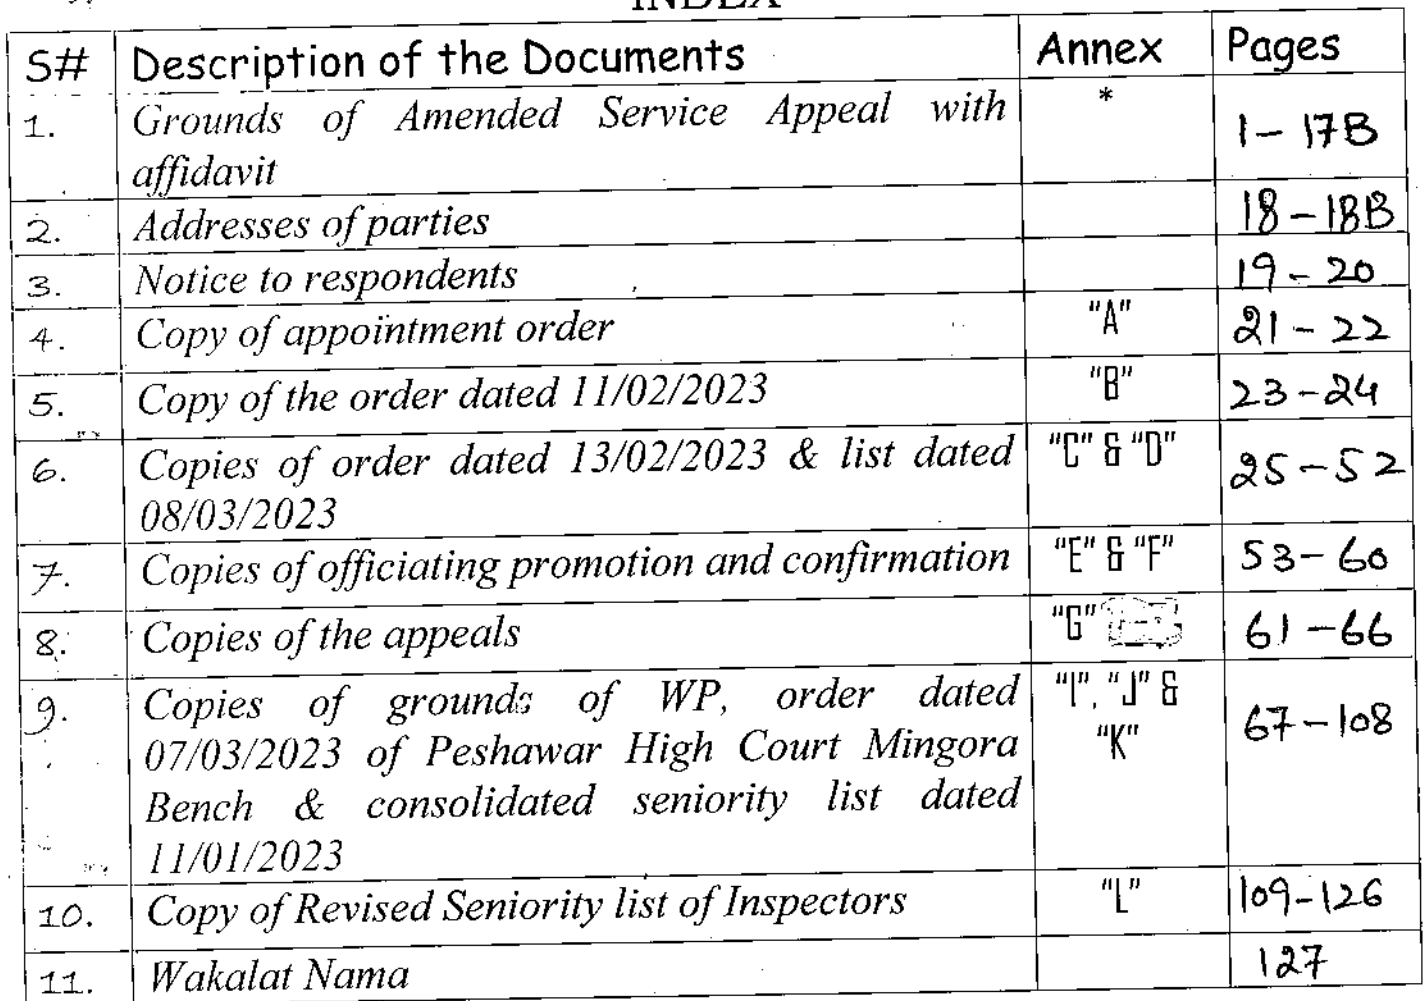 INDEX
S# Description of the Documents Annex Pages
1. Grounds of Amended Service Appeal with * 1 – 17B
affidavit
2. Addresses of parties 18 – 18B
3. Notice to respondents 19 – 20
4. Copy of appointment order "A" 21 – 22
5. Copy of the order dated 11/02/2023 "B" 23 – 24
6. Copies of order dated 13/02/2023 & list dated "C" & "D" 25 – 52
08/03/2023
7. Copies of officiating promotion and confirmation "E" & "F" 53 – 60
8. Copies of the appeals "G" 61 – 66
9. Copies of grounds of WP, order dated "I", "J" & 67 – 108
07/03/2023 of Peshawar High Court Mingora "K"
Bench & consolidated seniority list dated
11/01/2023
10. Copy of Revised Seniority list of Inspectors "L" 109 – 126
11. Wakalat Nama 127